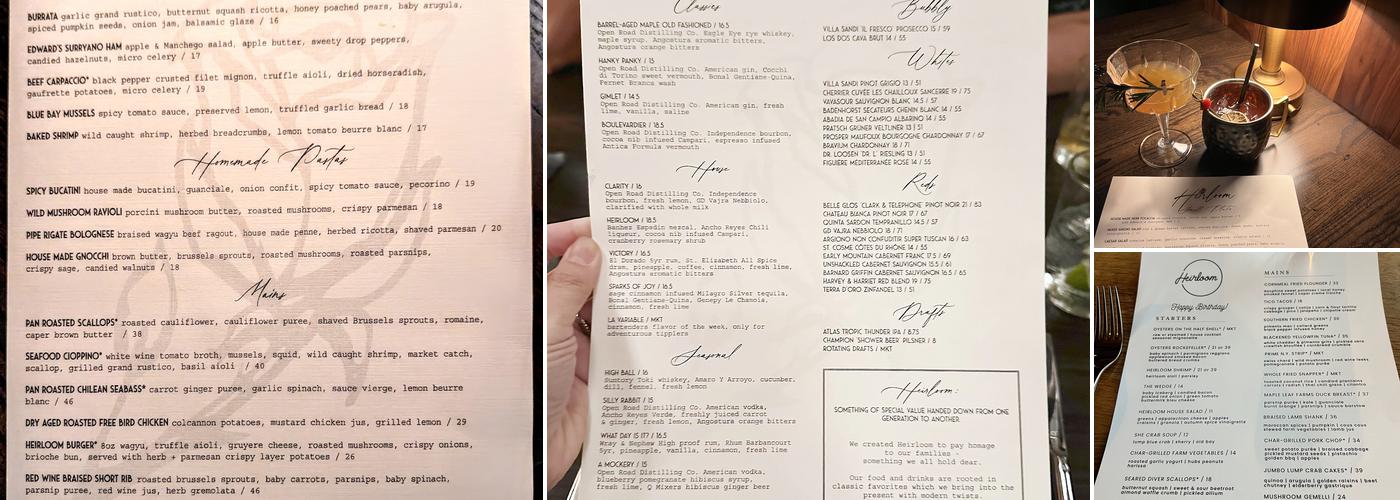 BURRATA garlic grand rustico, butternut squash ricotta, honey poached pears, baby arugula,
spiced pumpkin seeds, onion jam, balsamic glaze / 16
EDWARD'S SURRYANO HAM apple & Manchego salad, apple butter, sweety drop peppers,
candied hazelnuts, micro celery / 17
BEEF CARPACCIO* black pepper crusted filet mignon, truffle aioli, dried horseradish,
gaufrette potatoes, micro celery / 19
BLUE BAY MUSSELS spicy tomato sauce, preserved lemon, truffled garlic bread / 18
BAKED SHRIMP wild caught shrimp, herbed breadcrumbs, lemon tomato beurre blanc / 17
Homemade Pastas
SPICY BUCATINI house made bucatini, guanciale, onion confit, spicy tomato sauce, pecorino / 19
WILD MUSHROOM RAVIOLI porcini mushroom butter, roasted mushrooms, crispy parmesan / 18
PIPE RIGATE BOLOGNESE braised wagyu beef ragout, house made penne, herbed ricotta, shaved parmesan / 20
HOUSE MADE GNOCCHI brown butter, brussels sprouts, roasted mushrooms, roasted parsnips,
crispy sage, candied walnuts / 18
Mains
PAN ROASTED SCALLOPS* roasted cauliflower, cauliflower puree, shaved Brussels sprouts, romaine,
caper brown butter / 38
SEAFOOD CIOPPINO* white wine tomato broth, mussels, squid, wild caught shrimp, market catch,
scallop, grilled grand rustico, basil aioli / 40
PAN ROASTED CHILEAN SEABASS* carrot ginger puree, garlic spinach, sauce vierge, lemon beurre
blanc / 46
DRY AGED ROASTED FREE BIRD CHICKEN colcannon potatoes, mustard chicken jus, grilled lemon / 29
HEIRLOOM BURGER* 8oz wagyu, truffle aioli, gruyere cheese, roasted mushrooms, crispy onions,
brioche bun, served with herb + parmesan crispy layer potatoes / 26
RED WINE BRAISED SHORT RIB roasted brussels sprouts, baby carrots, parsnips, baby spinach,
parsnip puree, red wine jus, herb gremolata / 46
Classics
BARREL-AGED MAPLE OLD FASHIONED / 16.5
Open Road Distilling Co. Eagle Eye rye whiskey,
maple syrup, Angostura aromatic bitters,
Angostura orange bitters
HANKY PANKY / 15
Open Road Distilling Co. American gin, Cocchi
di Torino sweet vermouth, Bonal Gentiane-Quina,
Fernet Branca wash
GIMLET / 14.5
Open Road Distilling Co. American gin, fresh
lime, vanilla, saline
BOULEVARDIER / 16.5
Open Road Distilling Co. Independence bourbon,
cocoa nib infused Campari, espresso infused
Antica Formula vermouth
House
CLARITY / 16
Open Road Distilling Co. Independence
bourbon, fresh lemon, GD Vajra Nebbiolo,
clarified with whole milk
HEIRLOOM / 18.5
Banhez Espadin mezcal, Ancho Reyes Chili
liqueur, cocoa nib infused Campari,
cranberry rosemary shrub
VICTORY / 16.5
El Dorado 5yr rum, St. Elizabeth All Spice
dram, pineapple, coffee, cinnamon, fresh lime,
Angostura aromatic bitters
SPARKS OF JOY / 16.5
sage cinnamon infused Milagro Silver tequila,
Bonal Gentiane-Quina, Genepy Le Chamois,
cinnamon, fresh lime
LA VARIABLE / MKT
bartenders flavor of the week, only for
adventurous tipplers
Seasonal
HIGH BALL / 16
Suntory Toki whiskey, Amaro Y Arroyo, cucumber,
dill, fennel, fresh lemon
SILLY RABBIT / 15
Open Road Distilling Co. American vodka,
Ancho Reyes Verde, freshly juiced carrot
& ginger, fresh lemon, Angostura orange bitters
WHAT DAY IS IT? / 16.5
Wray & Nephew High proof rum, Rhum Barbancourt
5yr, pineapple, vanilla, cinnamon, fresh lime
A MOCKERY / 15
Open Road Distilling Co. American vodka,
blueberry pomegranate hibiscus syrup,
fresh lime, Q Mixers hibiscus ginger beer
Bubbly
VILLA SANDI 'IL FRESCO' PROSECCO 15 / 59
LOS DOS CAVA BRUT 14 / 55
Whites
VILLA SANDI PINOT GRIGIO 13 / 51
CHERRIER CUVÉE LES CHAILLOUX SANCERRE 19 / 75
VAVASOUR SAUVIGNON BLANC 14.5 / 57
BADENHORST SECATEURS CHENIN BLANC 14 / 55
ABADIA DE SAN CAMPIO ALBARINO 14 / 55
PRATSCH GRÜNER VELTLINER 13 | 51
PROSPER MAUFOUX BOURGOGNE CHARDONNAY 17 / 67
BRAVIUM CHARDONNAY 18 / 71
DR. LOOSEN 'DR. L' RIESLING 13 / 51
FIGUIÈRE MÉDITERRANÉE ROSE 14 / 55
Reds
BELLE GLOS 'CLARK & TELEPHONE' PINOT NOIR 21 / 83
CHATEAU BIANCA PINOT NOIR 17 / 67
QUINTA SARDON TEMPRANILLO 14.5 / 57
GD VAJRA NEBBIOLO 18 / 71
ARGIONO NON CONFUDITIR SUPER TUSCAN 16 / 63
ST. COSME CÔTES DU RHÔNE 14 / 55
EARLY MOUNTAIN CABERNET FRANC 17.5 / 69
UNSHACKLED CABERNET SAUVIGNON 15.5 / 61
BARNARD GRIFFIN CABERNET SAUVIGNON 16.5 / 65
HARVEY & HARRIET RED BLEND 19 / 75
TERRA D'ORO ZINFANDEL 13 / 51
Drafts
ATLAS TROPIC THUNDER IPA / 8.75
CHAMPION SHOWER BEER PILSNER / 8
ROTATING DRAFTS / MKT
Heirloom:
SOMETHING OF SPECIAL VALUE HANDED DOWN FROM ONE
GENERATION TO ANOTHER.
We created Heirloom to pay homage
to our families -
something we all hold dear.
Our food and drinks are rooted in
classic favorites which we bring into the
present with modern twists.
Heirloom
HOUSE MADE FOCACCIA
MIXED GREENS SALAD
CAESAR SALAD
Heirloom
Happy Birthday!
STARTERS
OYSTERS ON THE HALF SHELL* / MKT
OYSTERS ROCKEFELLER* / 21 or 39
baby spinach | parmigiano reggiano
buttered bread crumbs
HEIRLOOM SHRIMP / 21 or 39
heirloom aioli | parsley
THE WEDGE / 14
baby iceberg | candied bacon
pickled red onion | green tomato
buttermilk bleu cheese
HEIRLOOM HOUSE SALAD / 11
SHE CRAB SOUP / 12
lump blue crab | sherry | old bay
CHAR-GRILLED FARM VEGETABLES / 14
roasted garlic yogurt | hubs peanuts
harissa
SEARED DIVER SCALLOPS* / 18
butternut squash | sweet & sour beetroot
almond waffle crumb | pickled allium
MAINS
CORNMEAL FRIED FLOUNDER / 33
TICO TACOS / 18
SOUTHERN FRIED CHICKEN* / 30
pimento mac | collard greens
BLACKENED YELLOWFIN TUNA* / 35
PRIME N.Y. STRIP* / MKT
WHOLE FRIED SNAPPER* / MKT
MAPLE LEAF FARMS DUCK BREAST* / 37
BRAISED LAMB SHANK / 36
CHAR-GRILLED PORK CHOP* / 34
JUMBO LUMP CRAB CAKES* / 39
MUSHROOM GEMELLI / 24